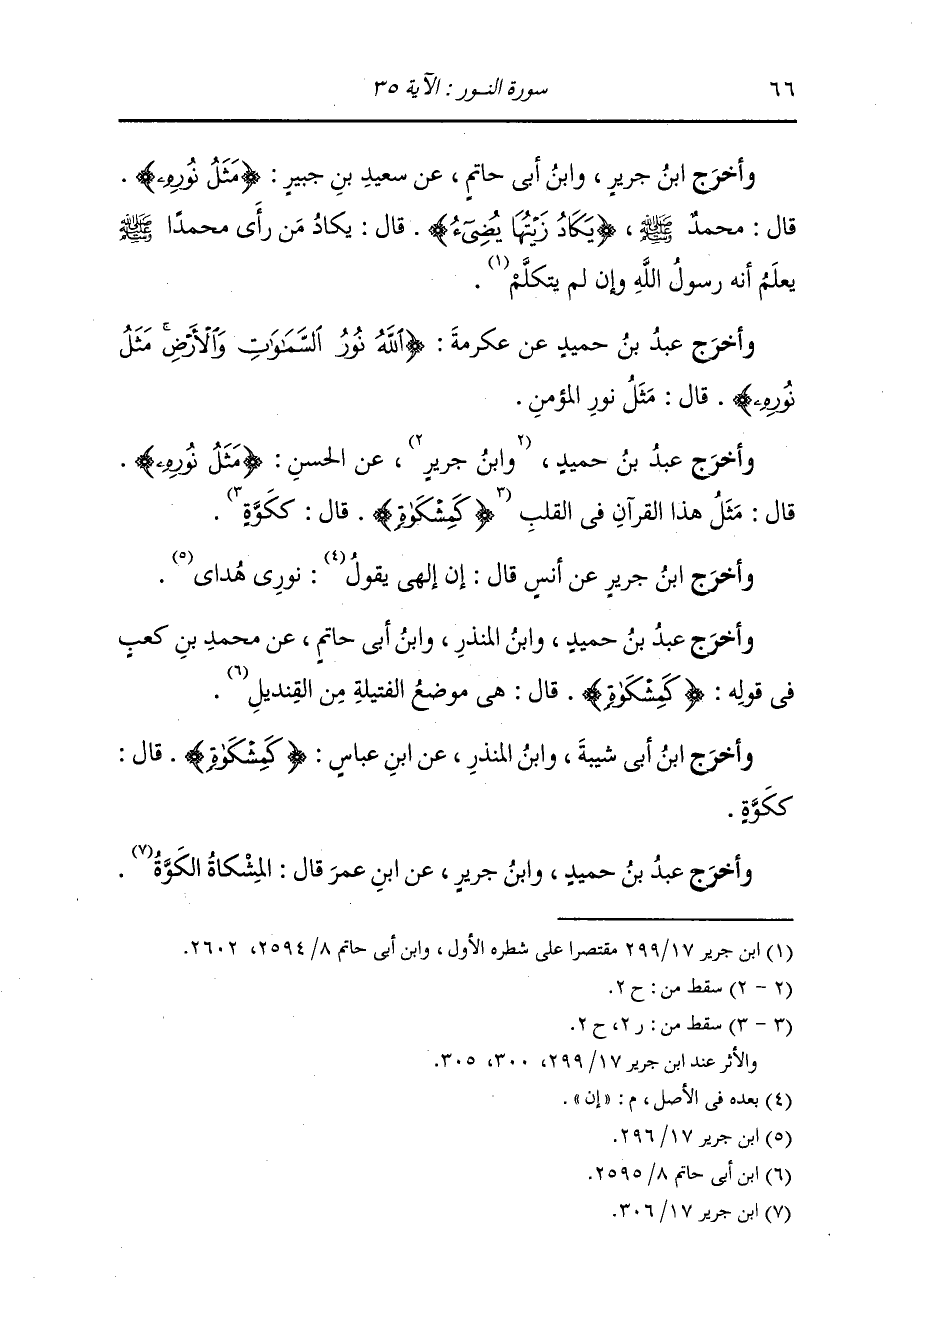 ٦٦ سورة النـور : الآية ٣٥
وأخرَج ابنُ جريرٍ ، وابنُ أبى حاتمٍ ، عن سعيدِ بنِ جبيرٍ : ﴿مَثَلُ نُورِهِۦ﴾ .
قال : محمدٌ ﷺ ، ﴿يَكَادُ زَيْتُهَا يُضِىٓءُ﴾ . قال : يكادُ مَن رأَى محمدًا ﷺ
يعلَمُ أنه رسولُ اللَّهِ وإن لم يتكلَّمْ(١) .
وأخرَج عبدُ بنُ حميدٍ عن عكرمةَ : ﴿ٱللَّهُ نُورُ ٱلسَّمَٰوَٰتِ وَٱلْأَرْضِۚ مَثَلُ
نُورِهِۦ﴾ . قال : مَثَلُ نورِ المؤمنِ .
وأخرَج عبدُ بنُ حميدٍ ، (٢وابنُ جريرٍ٢) ، عن الحسنِ : ﴿مَثَلُ نُورِهِۦ﴾ .
قال : مَثَلُ هذا القرآنِ فى القلبِ (٣﴿كَمِشْكَوٰةٍ﴾ . قال : ككَوَّةٍ٣) .
وأخرَج ابنُ جريرٍ عن أنسٍ قال : إن إلهى يقولُ(٤) : نورِى هُداى(٥) .
وأخرَج عبدُ بنُ حميدٍ ، وابنُ المنذرِ ، وابنُ أبى حاتمٍ ، عن محمدِ بنِ كعبٍ
فى قولِه : ﴿كَمِشْكَوٰةٍ﴾ . قال : هى موضعُ الفتيلةِ مِن القِنديلِ(٦) .
وأخرَج ابنُ أبى شيبةَ ، وابنُ المنذرِ ، عن ابنِ عباسٍ : ﴿كَمِشْكَوٰةٍ﴾ . قال :
ككَوَّةٍ .
وأخرَج عبدُ بنُ حميدٍ ، وابنُ جريرٍ ، عن ابنِ عمرَ قال : المِشْكاةُ الكَوَّةُ(٧) .
(١) ابن جرير ٢٩٩/١٧ مقتصرا على شطره الأول ، وابن أبى حاتم ٨/ ٢٥٩٤، ٢٦٠٢.
(٢ - ٢) سقط من : ح ٢.
(٣ - ٣) سقط من : ر ٢، ح ٢.
والأثر عند ابن جرير ١٧/ ٢٩٩، ٣٠٠، ٣٠٥.
(٤) بعده فى الأصل ، م : «إن» .
(٥) ابن جرير ١٧/ ٢٩٦.
(٦) ابن أبى حاتم ٨/ ٢٥٩٥.
(٧) ابن جرير ١٧/ ٣٠٦.